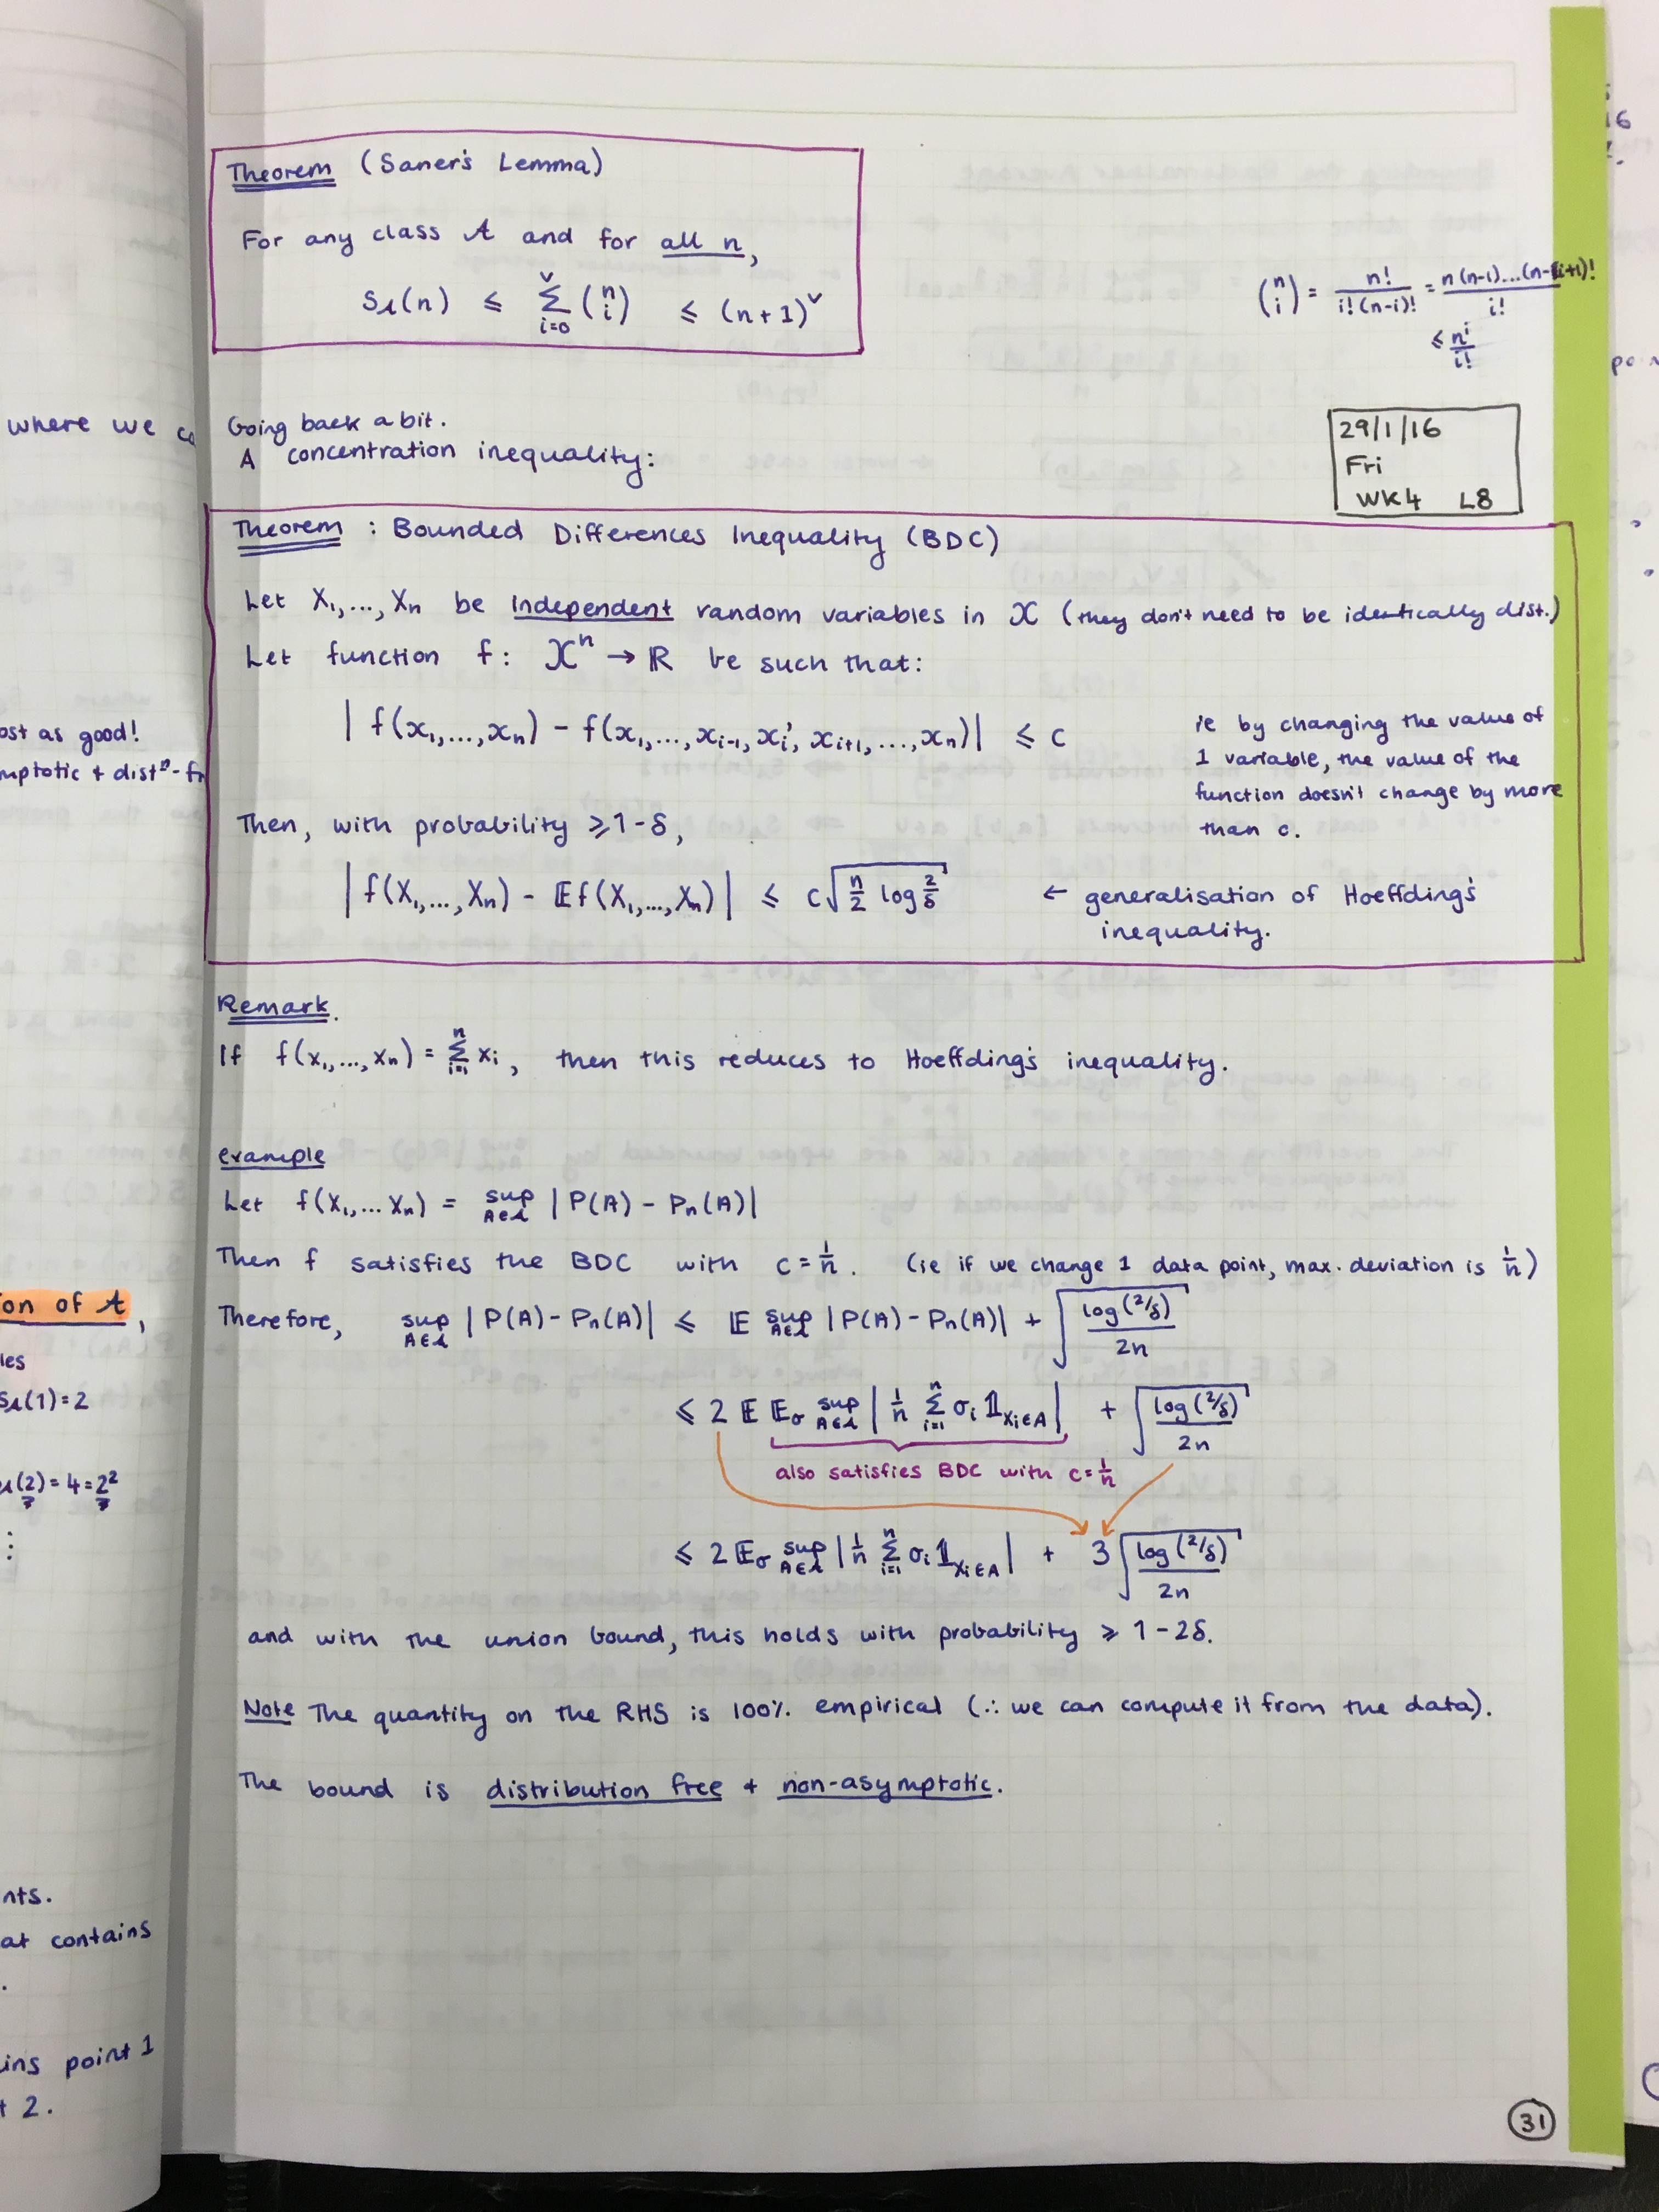 Theorem (Saner's Lemma)
For any class 𝒜 and for all n,
S𝒜(n) ≤ Σ_{i=0}^{V} (n i) ≤ (n+1)^V
(n i) = n!/(i!(n-i)!) = n(n-1)...(n-i+1)!/i!
≤ n^i/i!
Going back a bit.
A concentration inequality:
29/1/16
Fri
WK4 L8
Theorem : Bounded Differences Inequality (BDC)
Let X₁,...,Xn be independent random variables in 𝒳 (they don't need to be identically dist.)
Let function f: 𝒳ⁿ → ℝ be such that:
|f(x₁,...,xn) - f(x₁,...,x_{i-1}, x_i', x_{i+1},...,xn)| ≤ c
ie by changing the value of
1 variable, the value of the
function doesn't change by more
than c.
Then, with probability ≥ 1-δ,
|f(X₁,...,Xn) - 𝔼f(X₁,...,Xn)| ≤ c√(n/2 log 2/δ)
← generalisation of Hoeffding's
inequality.
Remark.
If f(x₁,...,xn) = Σ_{i=1}^{n} xi, then this reduces to Hoeffding's inequality.
example
Let f(x₁,...xn) = sup_{A∈𝒜} |P(A) - Pn(A)|
Then f satisfies the BDC with c = 1/n. (ie if we change 1 data point, max. deviation is 1/n)
Therefore, sup_{A∈𝒜} |P(A) - Pn(A)| ≤ 𝔼 sup_{A∈𝒜} |P(A) - Pn(A)| + √(log(2/δ)/2n)
≤ 2 𝔼 𝔼σ sup_{A∈𝒜} |1/n Σ_{i=1}^{n} σi 𝟙_{Xi∈A}| + √(log(2/δ)/2n)
also satisfies BDC with c = 1/n
≤ 2𝔼σ sup_{A∈𝒜} |1/n Σ_{i=1}^{n} σi 𝟙_{Xi∈A}| + 3√(log(2/δ)/2n)
and with the union bound, this holds with probability ≥ 1-2δ.
Note The quantity on the RHS is 100% empirical (∴ we can compute it from the data).
The bound is distribution free + non-asymptotic.
31
where we
ost as good!
mptotic + distⁿ-fr
on of 𝒜,
les
S𝒜(1)=2
(2)=4=2²
⋮
nts.
at contains
.
ins point 1
t 2.